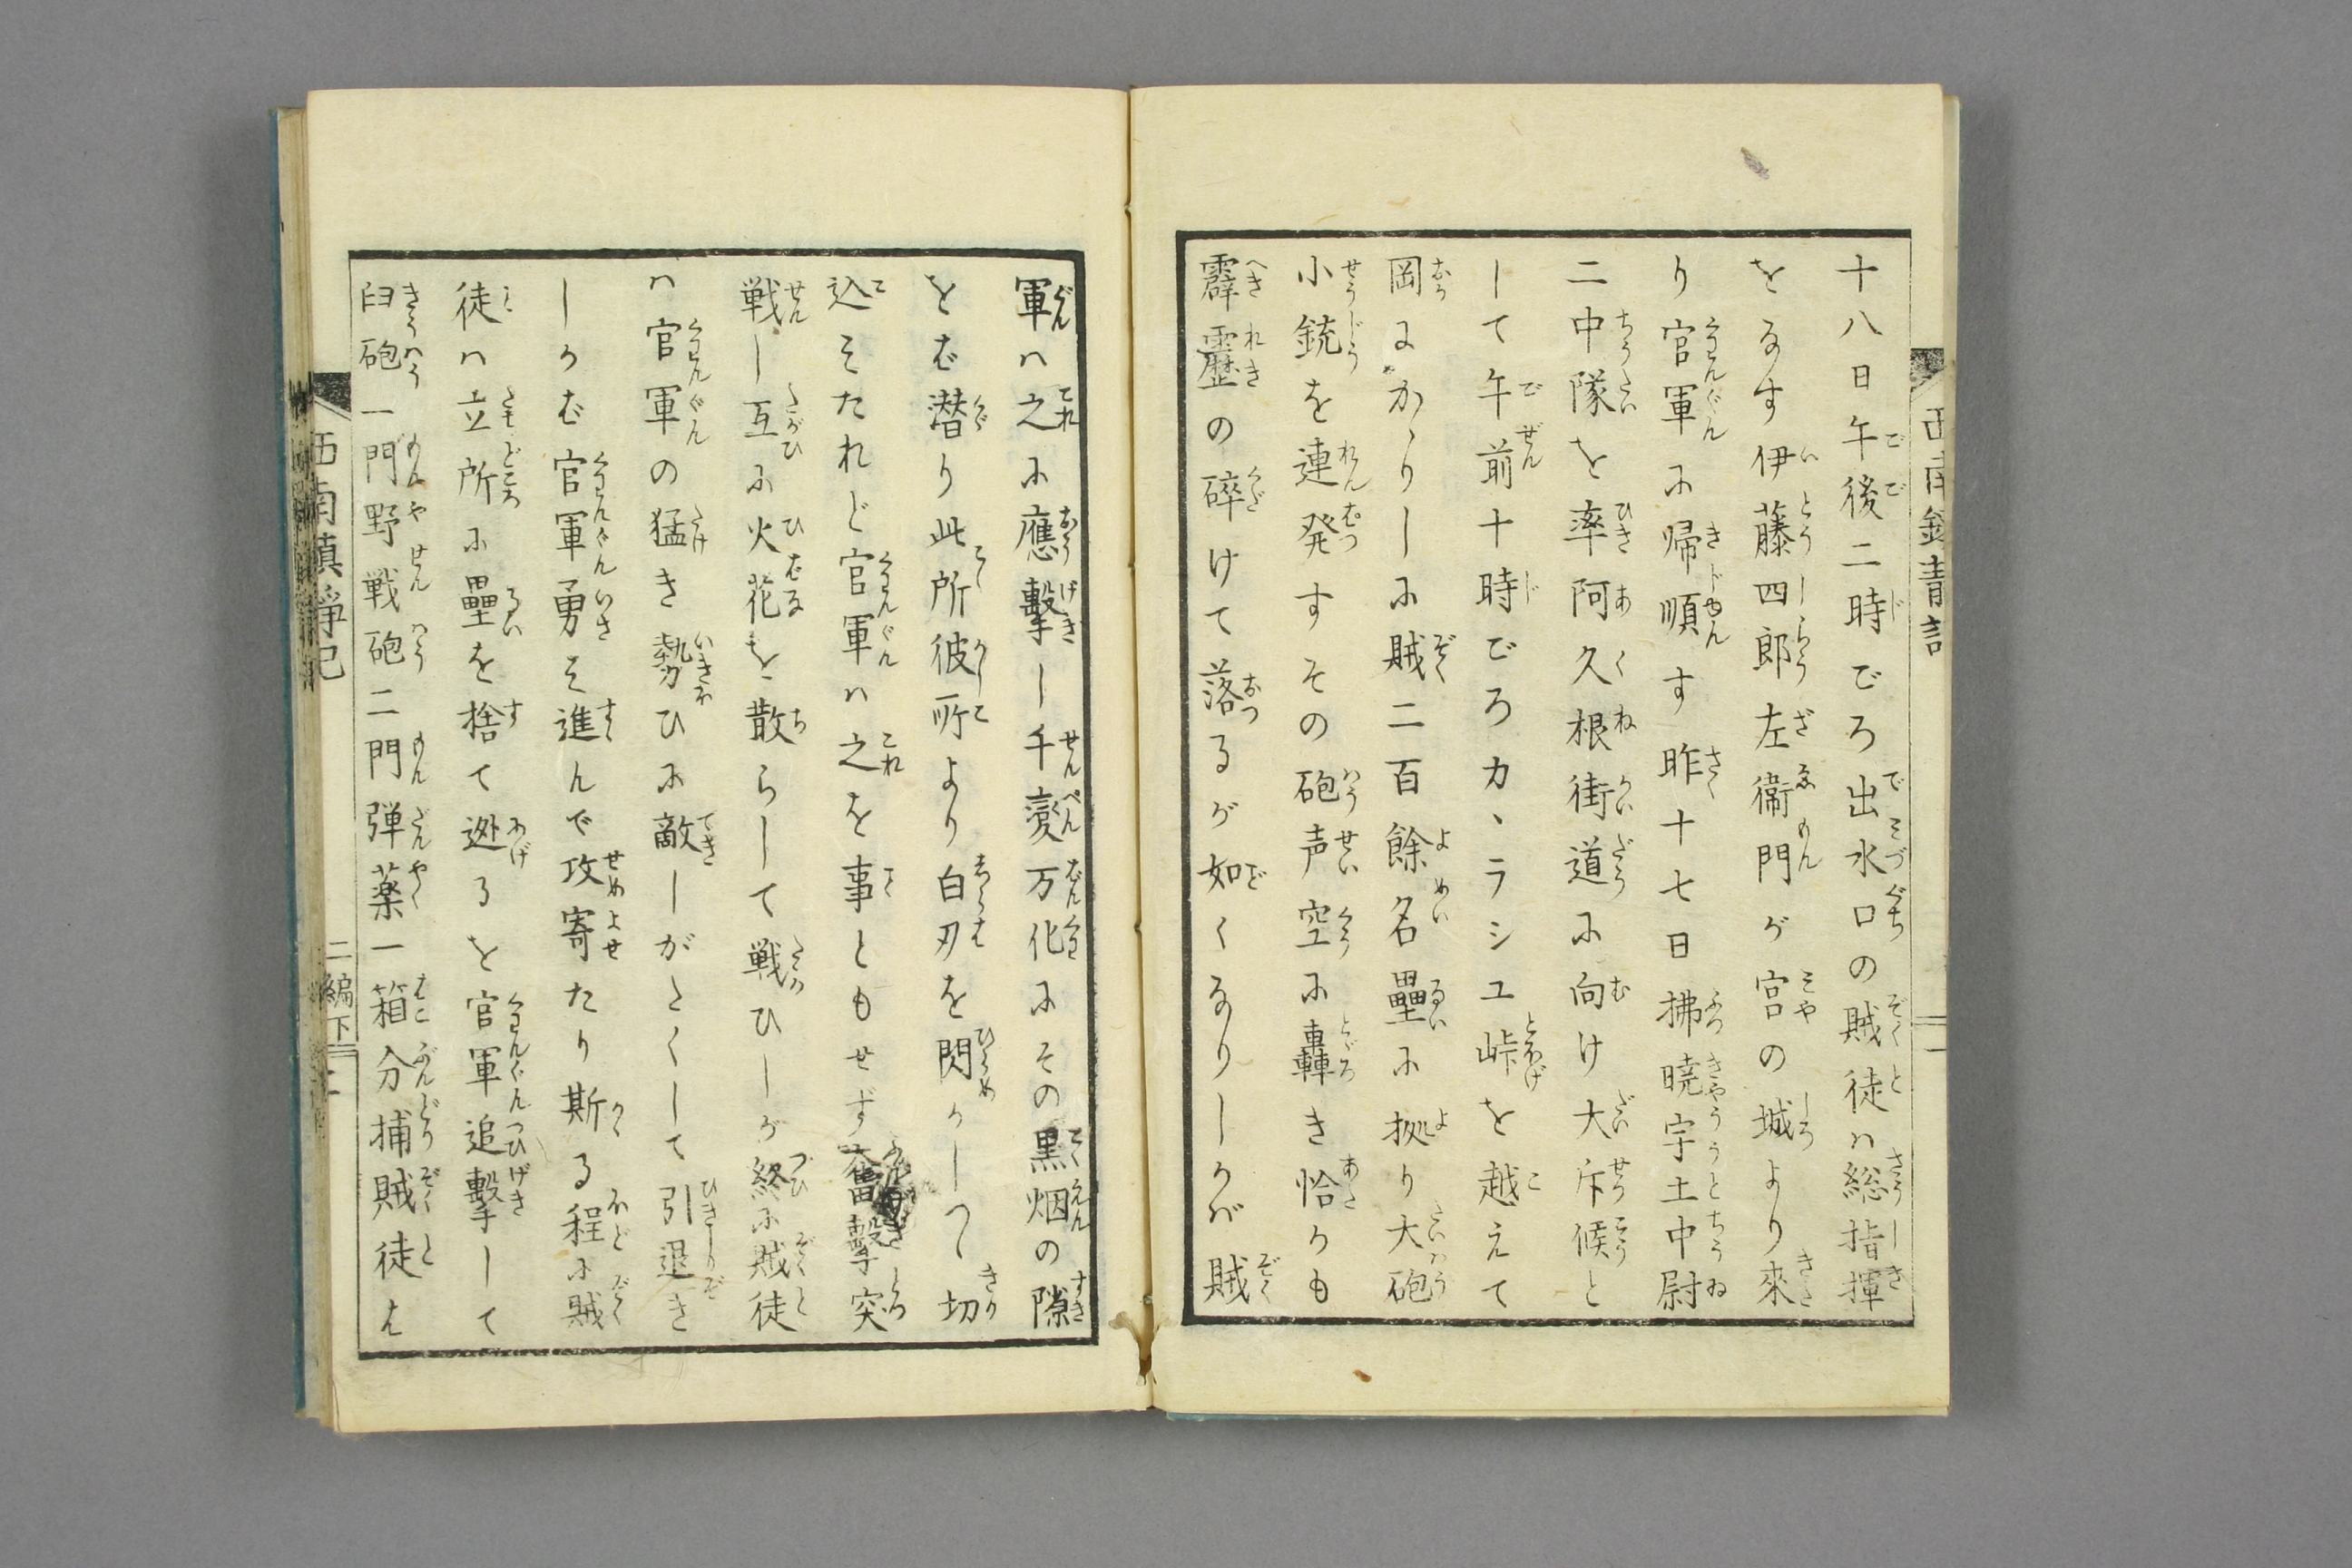 十八日午後二時ごろ出水口の賊徒ハ総指揮
をなす伊藤四郎左衛門が宮の城より來
り官軍に帰順す昨十七日拂暁宇土中尉
二中隊を率阿久根街道に向け大斥候と
して午前十時ごろカヽラシユ峠を越えて
岡にかゝりしに賊二百餘名壘に拠り大砲
小銃を連発すその砲声空に轟き恰かも
霹靂の碎けて落るが如くなりしかバ賊
軍ハ之に應擊し千變万化にその黒烟の隙
をば潜り此所彼所より白刃を閃かしつヽ切
込みたれど官軍ハ之を事ともせず奮擊突
戦し互に火花を散らして戦ひしが終に賊徒
ハ官軍の猛き勢ひに敵しがたくして引退き
しかば官軍勇み進んで攻寄たり斯る程に賊
徒ハ立所に壘を捨て迯るを官軍追擊して
臼砲一門野戦砲二門弾薬一箱分捕賊徒は
西南鎮静記
二編下
二